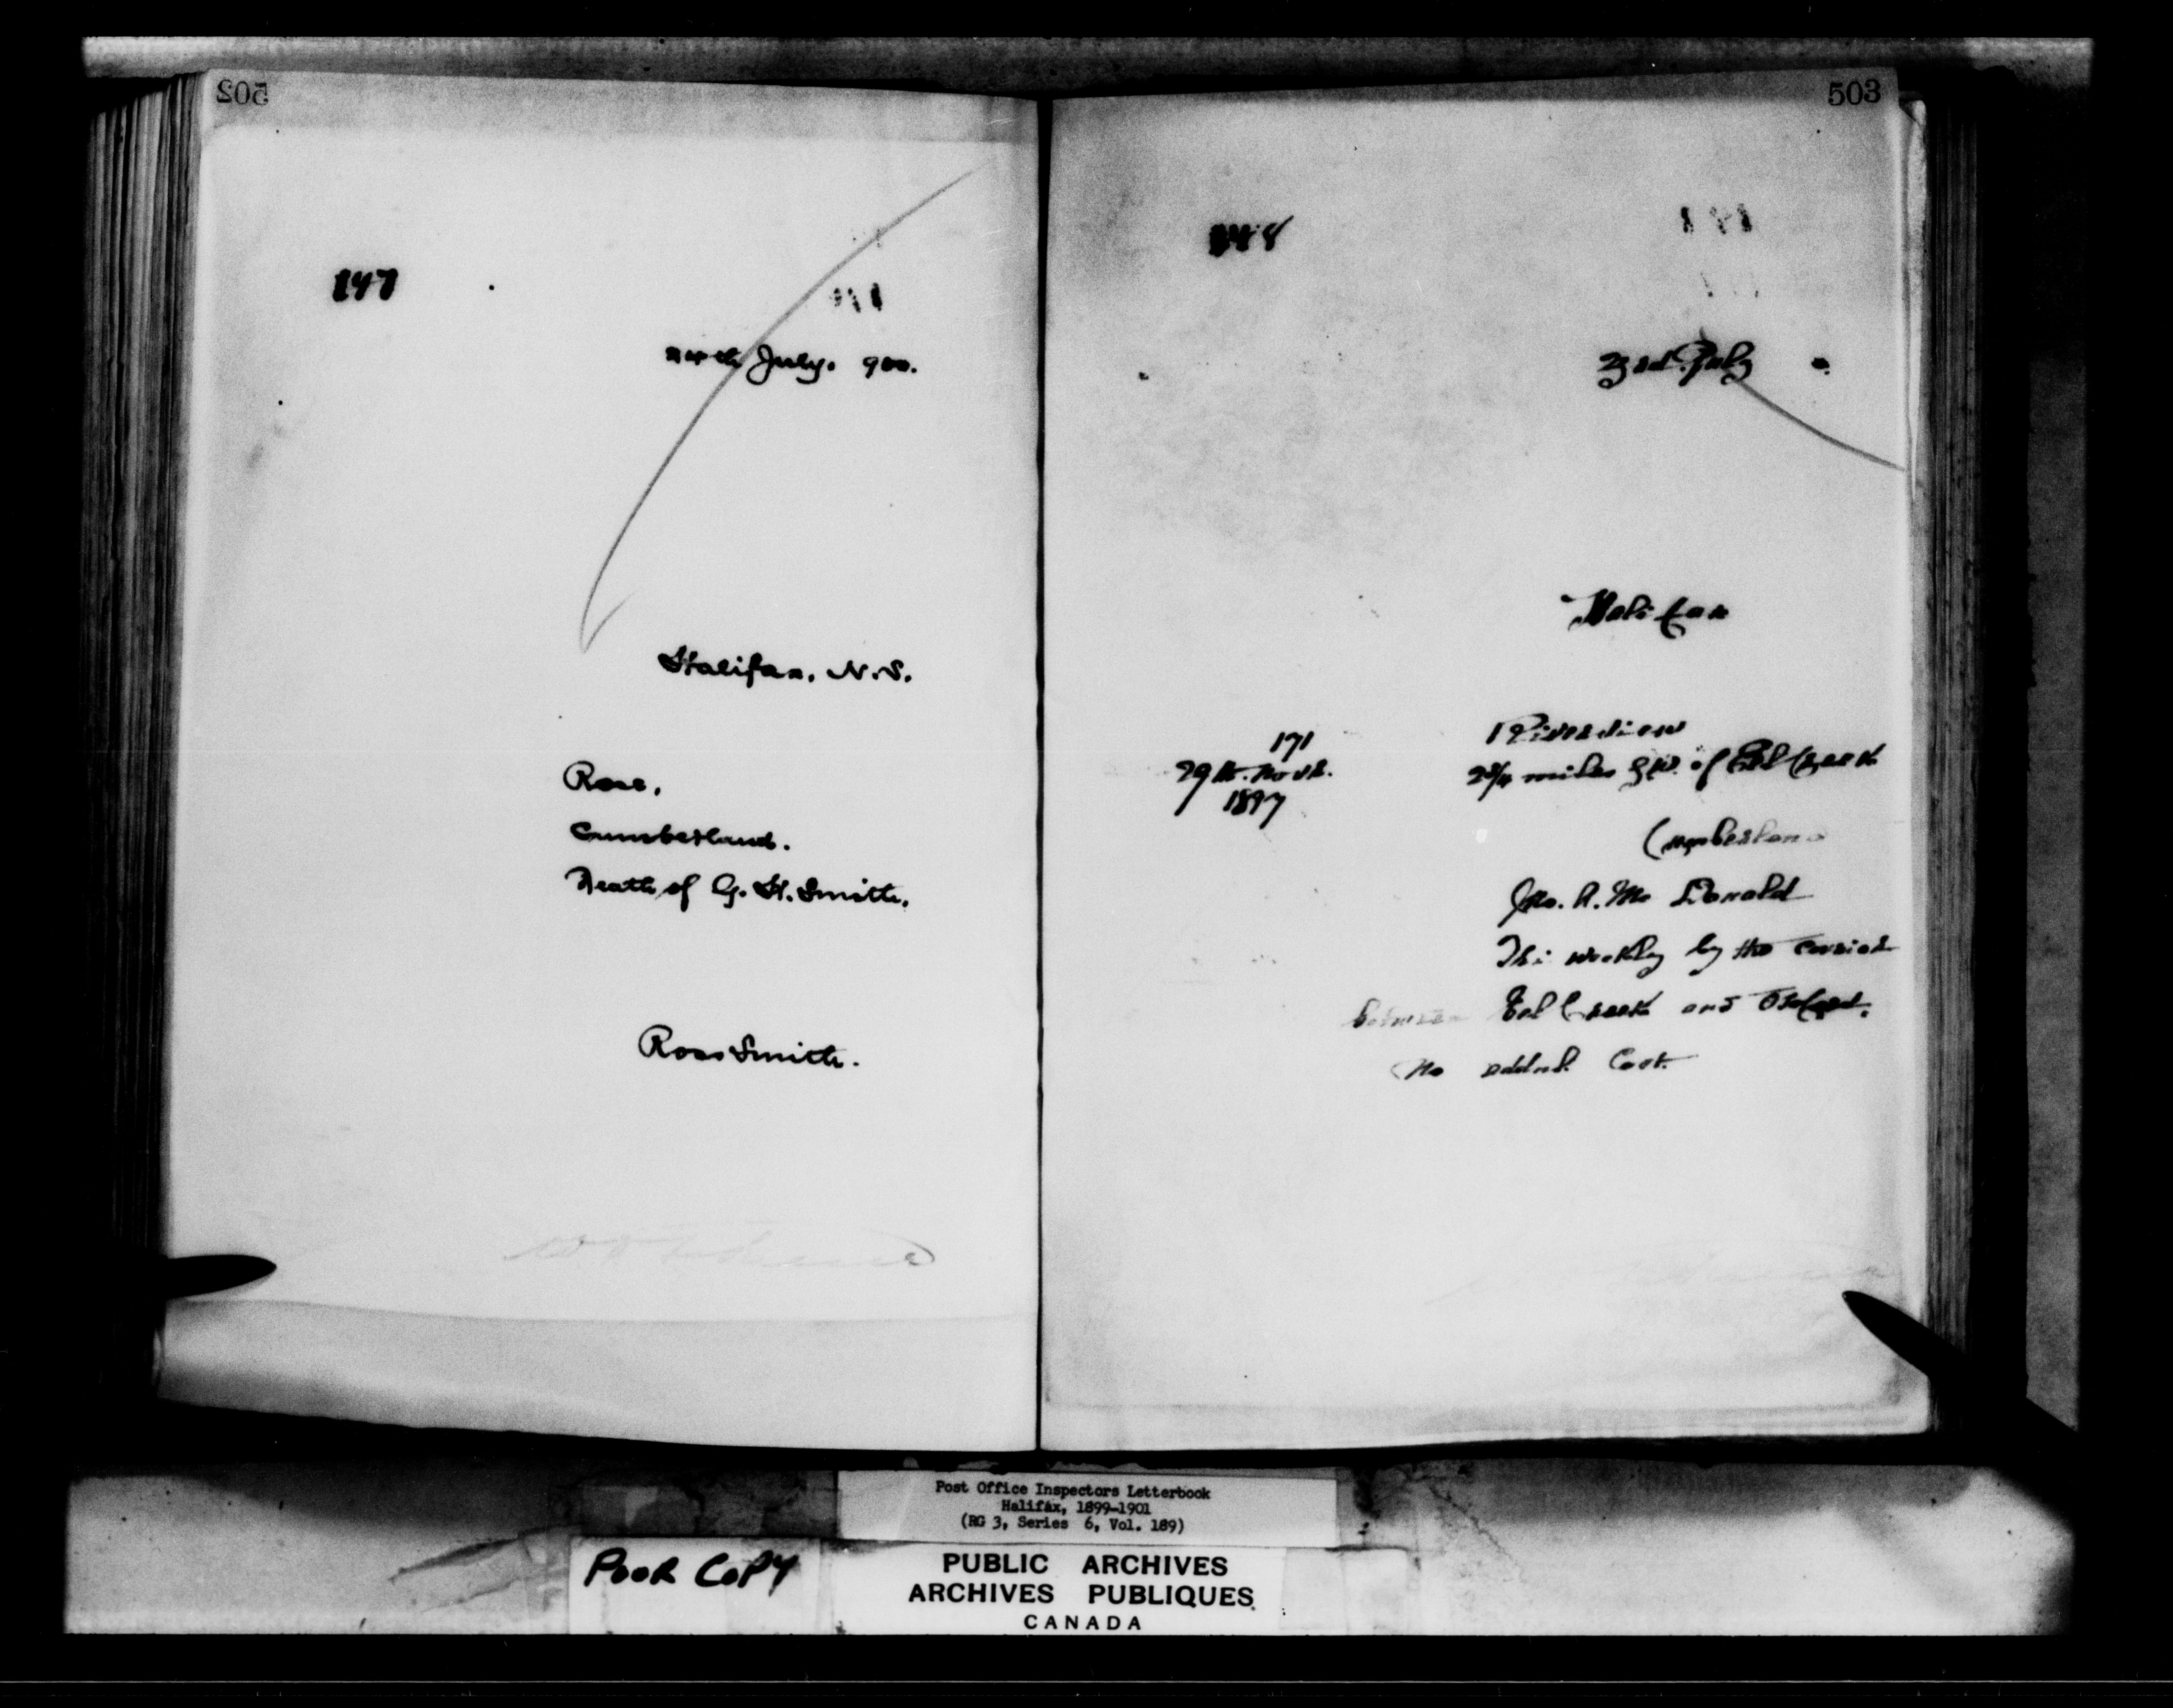 502
147
July. 900.
Halifax, N.S.
Rose,
Cumberland.
Death of G. H. Smith.
Ross Smith.
503
148
23rd July
Halifax
171
29th Novr.
1897
Riverview
2 3/4 miles S.W. of Eel Creek
Cumberland
Jno. A. Mc Donald
Tri weekly by the Courier
between Eel Creek and Oxford.
No addnl. Cost.
Post Office Inspectors Letterbook
Halifax, 1899-1901
(RG 3, Series 6, Vol. 189)
POOR COPY
PUBLIC ARCHIVES
ARCHIVES PUBLIQUES
CANADA